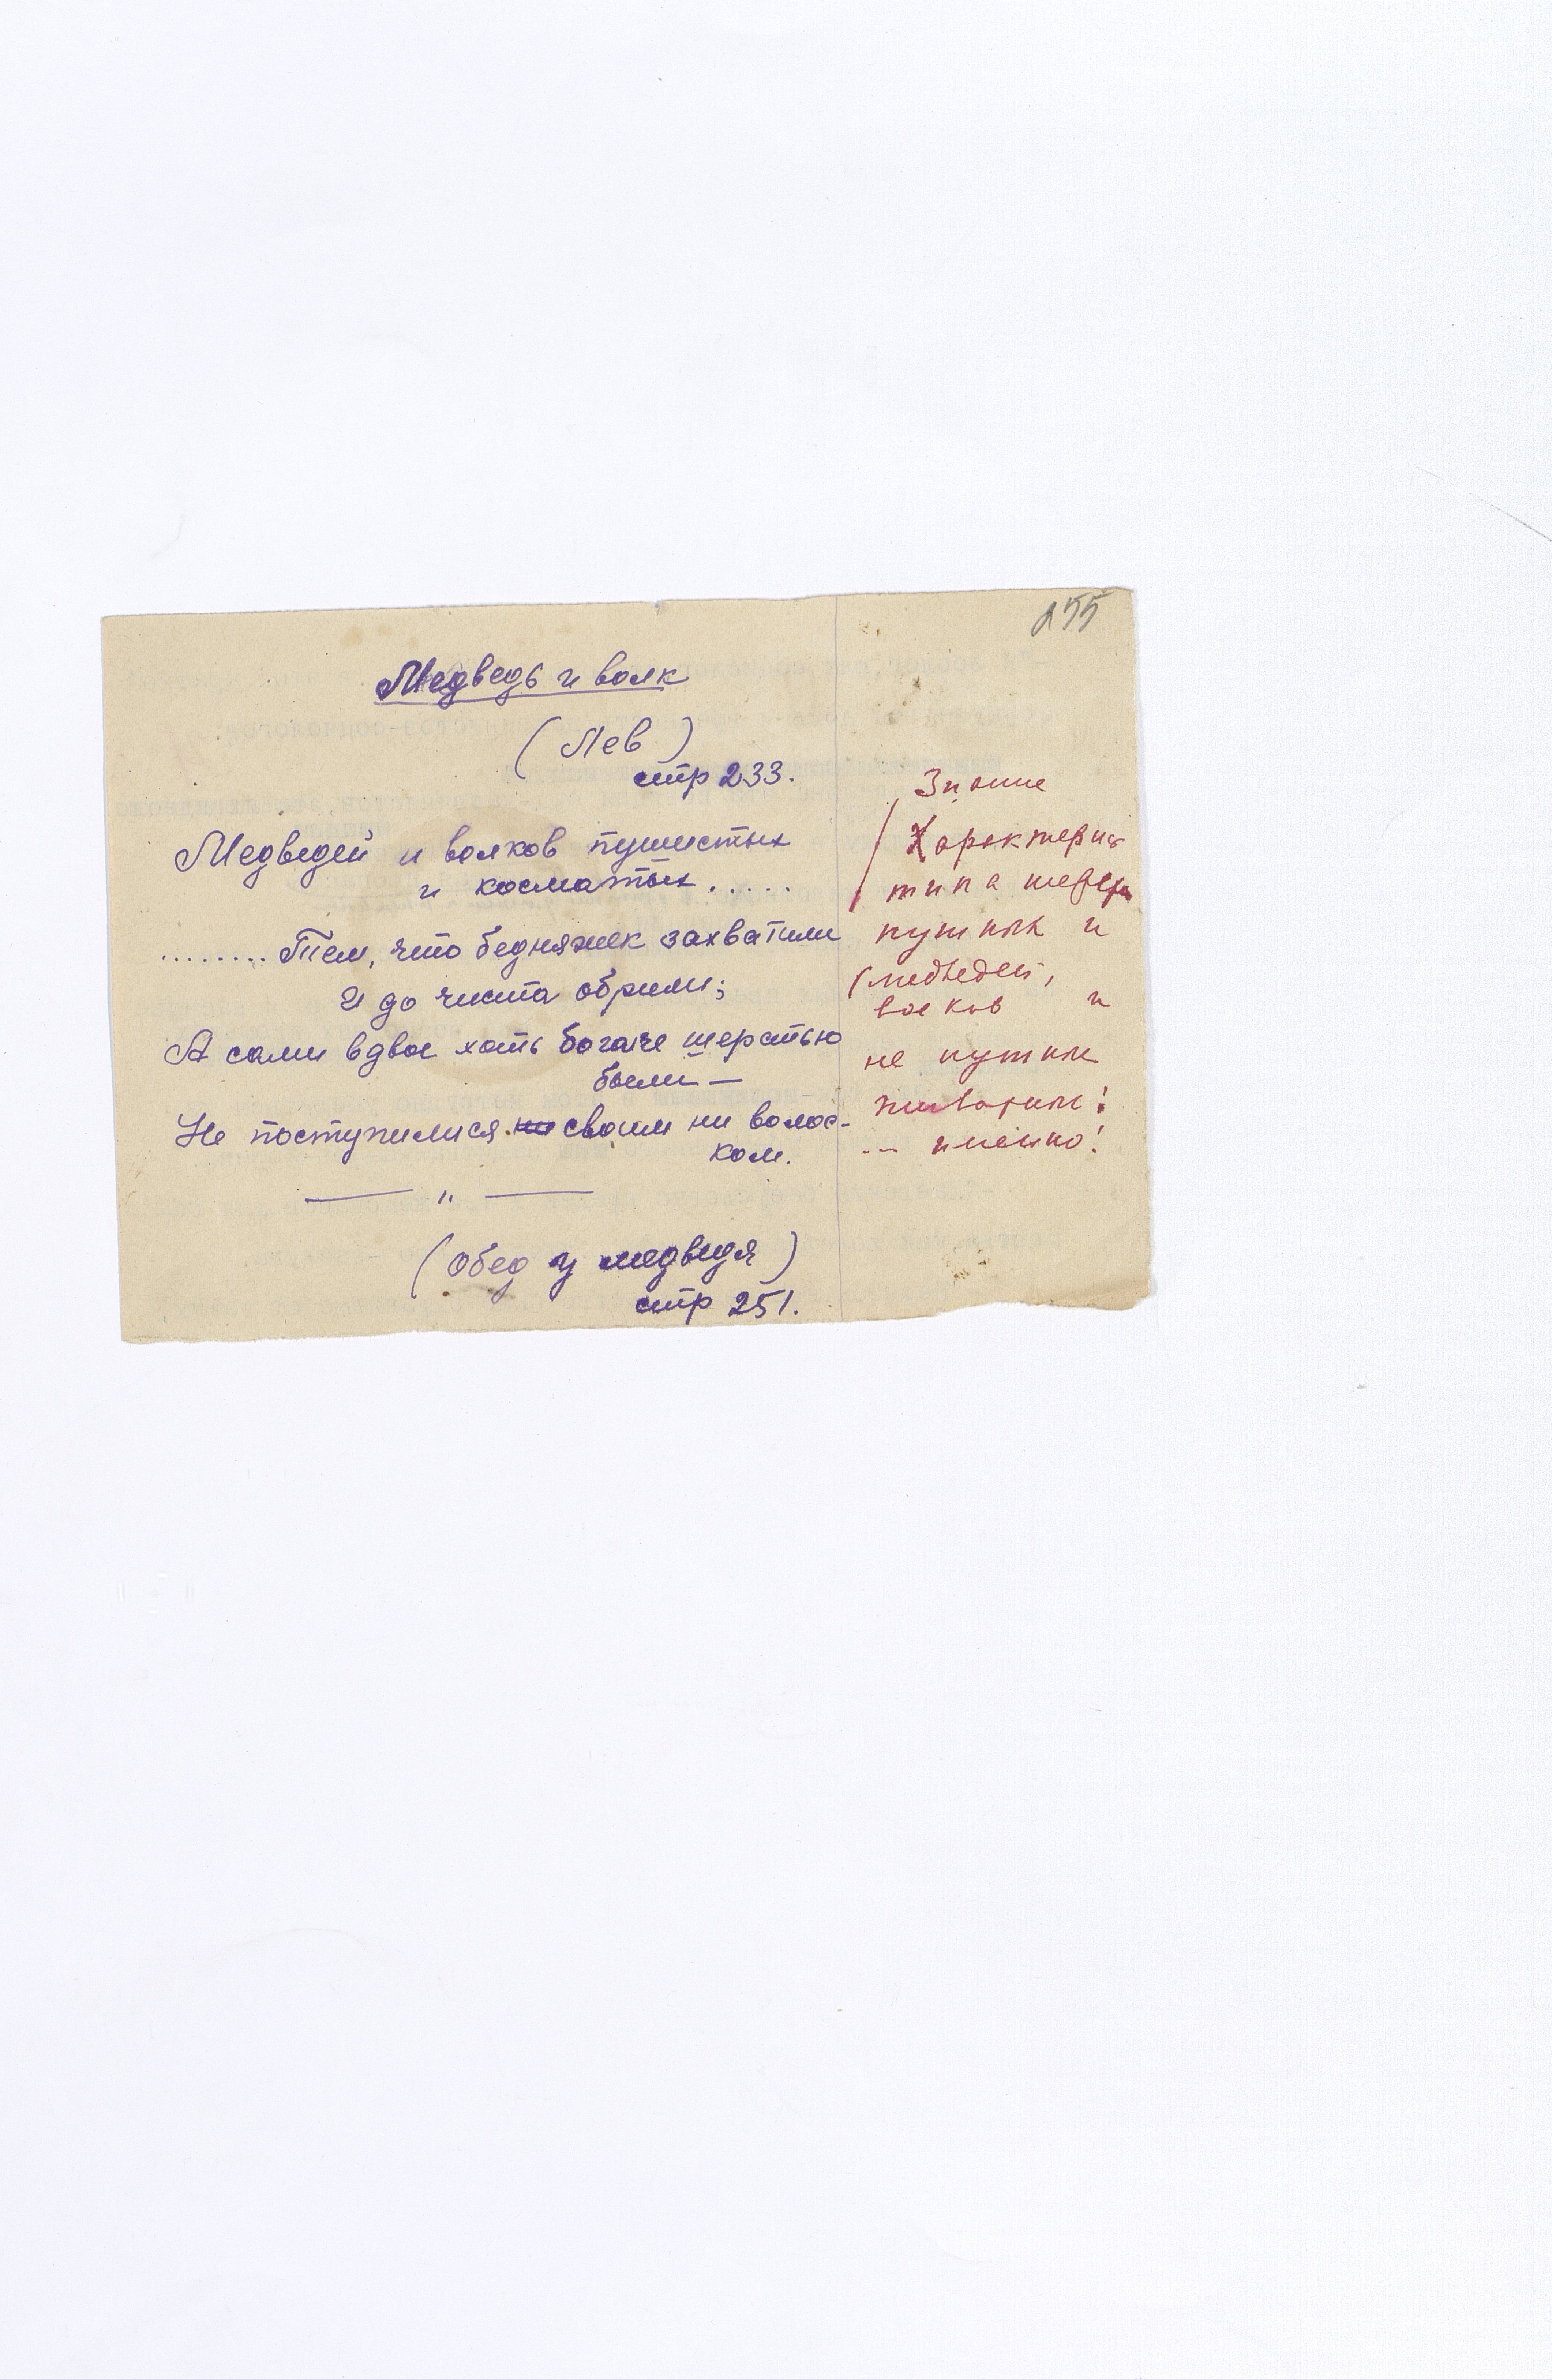 255
Медведь и волк
(Лев)
стр 233.
Медведей и волков пушистых
и косматых.....
........Тем, что бедняжек захватили
И до чиста обрили;
А сами вдвое хоть богаче шерстью
были —
Не поступилися ни своим ни волос-
ком.
— " —
(Обед у медведя)
стр 251.
Знание
Характерис
типа
пушных и
(медведей,
волков и
не пушных
животных!
--- именно!